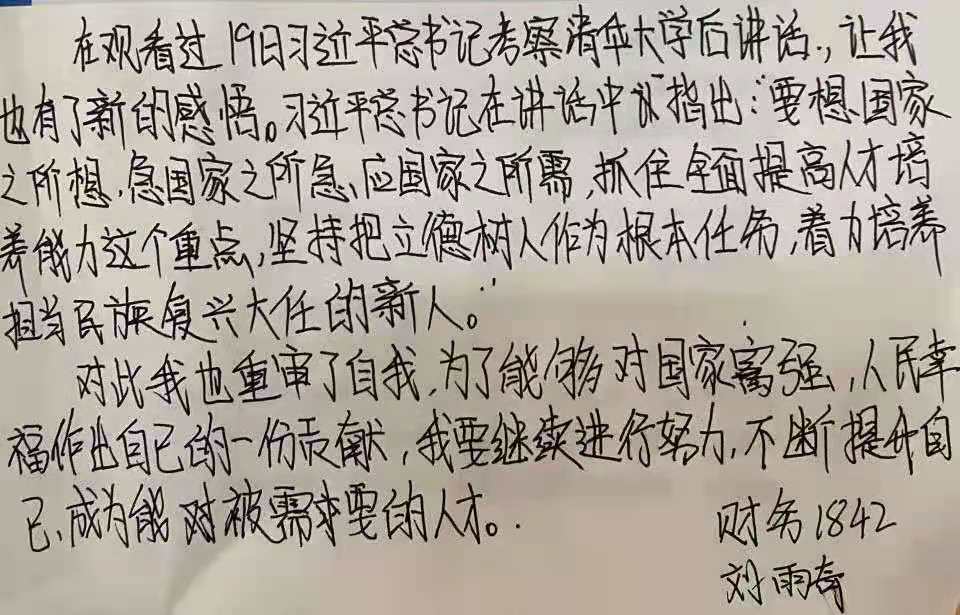 在观看过19日习近平总书记考察清华大学后讲话,让我
也有了新的感悟。习近平总书记在讲话中指出:“要想国家
之所想、急国家之所急、应国家之所需,抓住全面提高人才培
养能力这个重点,坚持把立德树人作为根本任务,着力培养
担当民族复兴大任的新人。”
对此我也重审了自我,为了能够对国家富强,人民幸
福作出自己的一份贡献,我要继续进行努力,不断提升自
己,成为能对被需求要的人才。
财务1842
刘雨奇